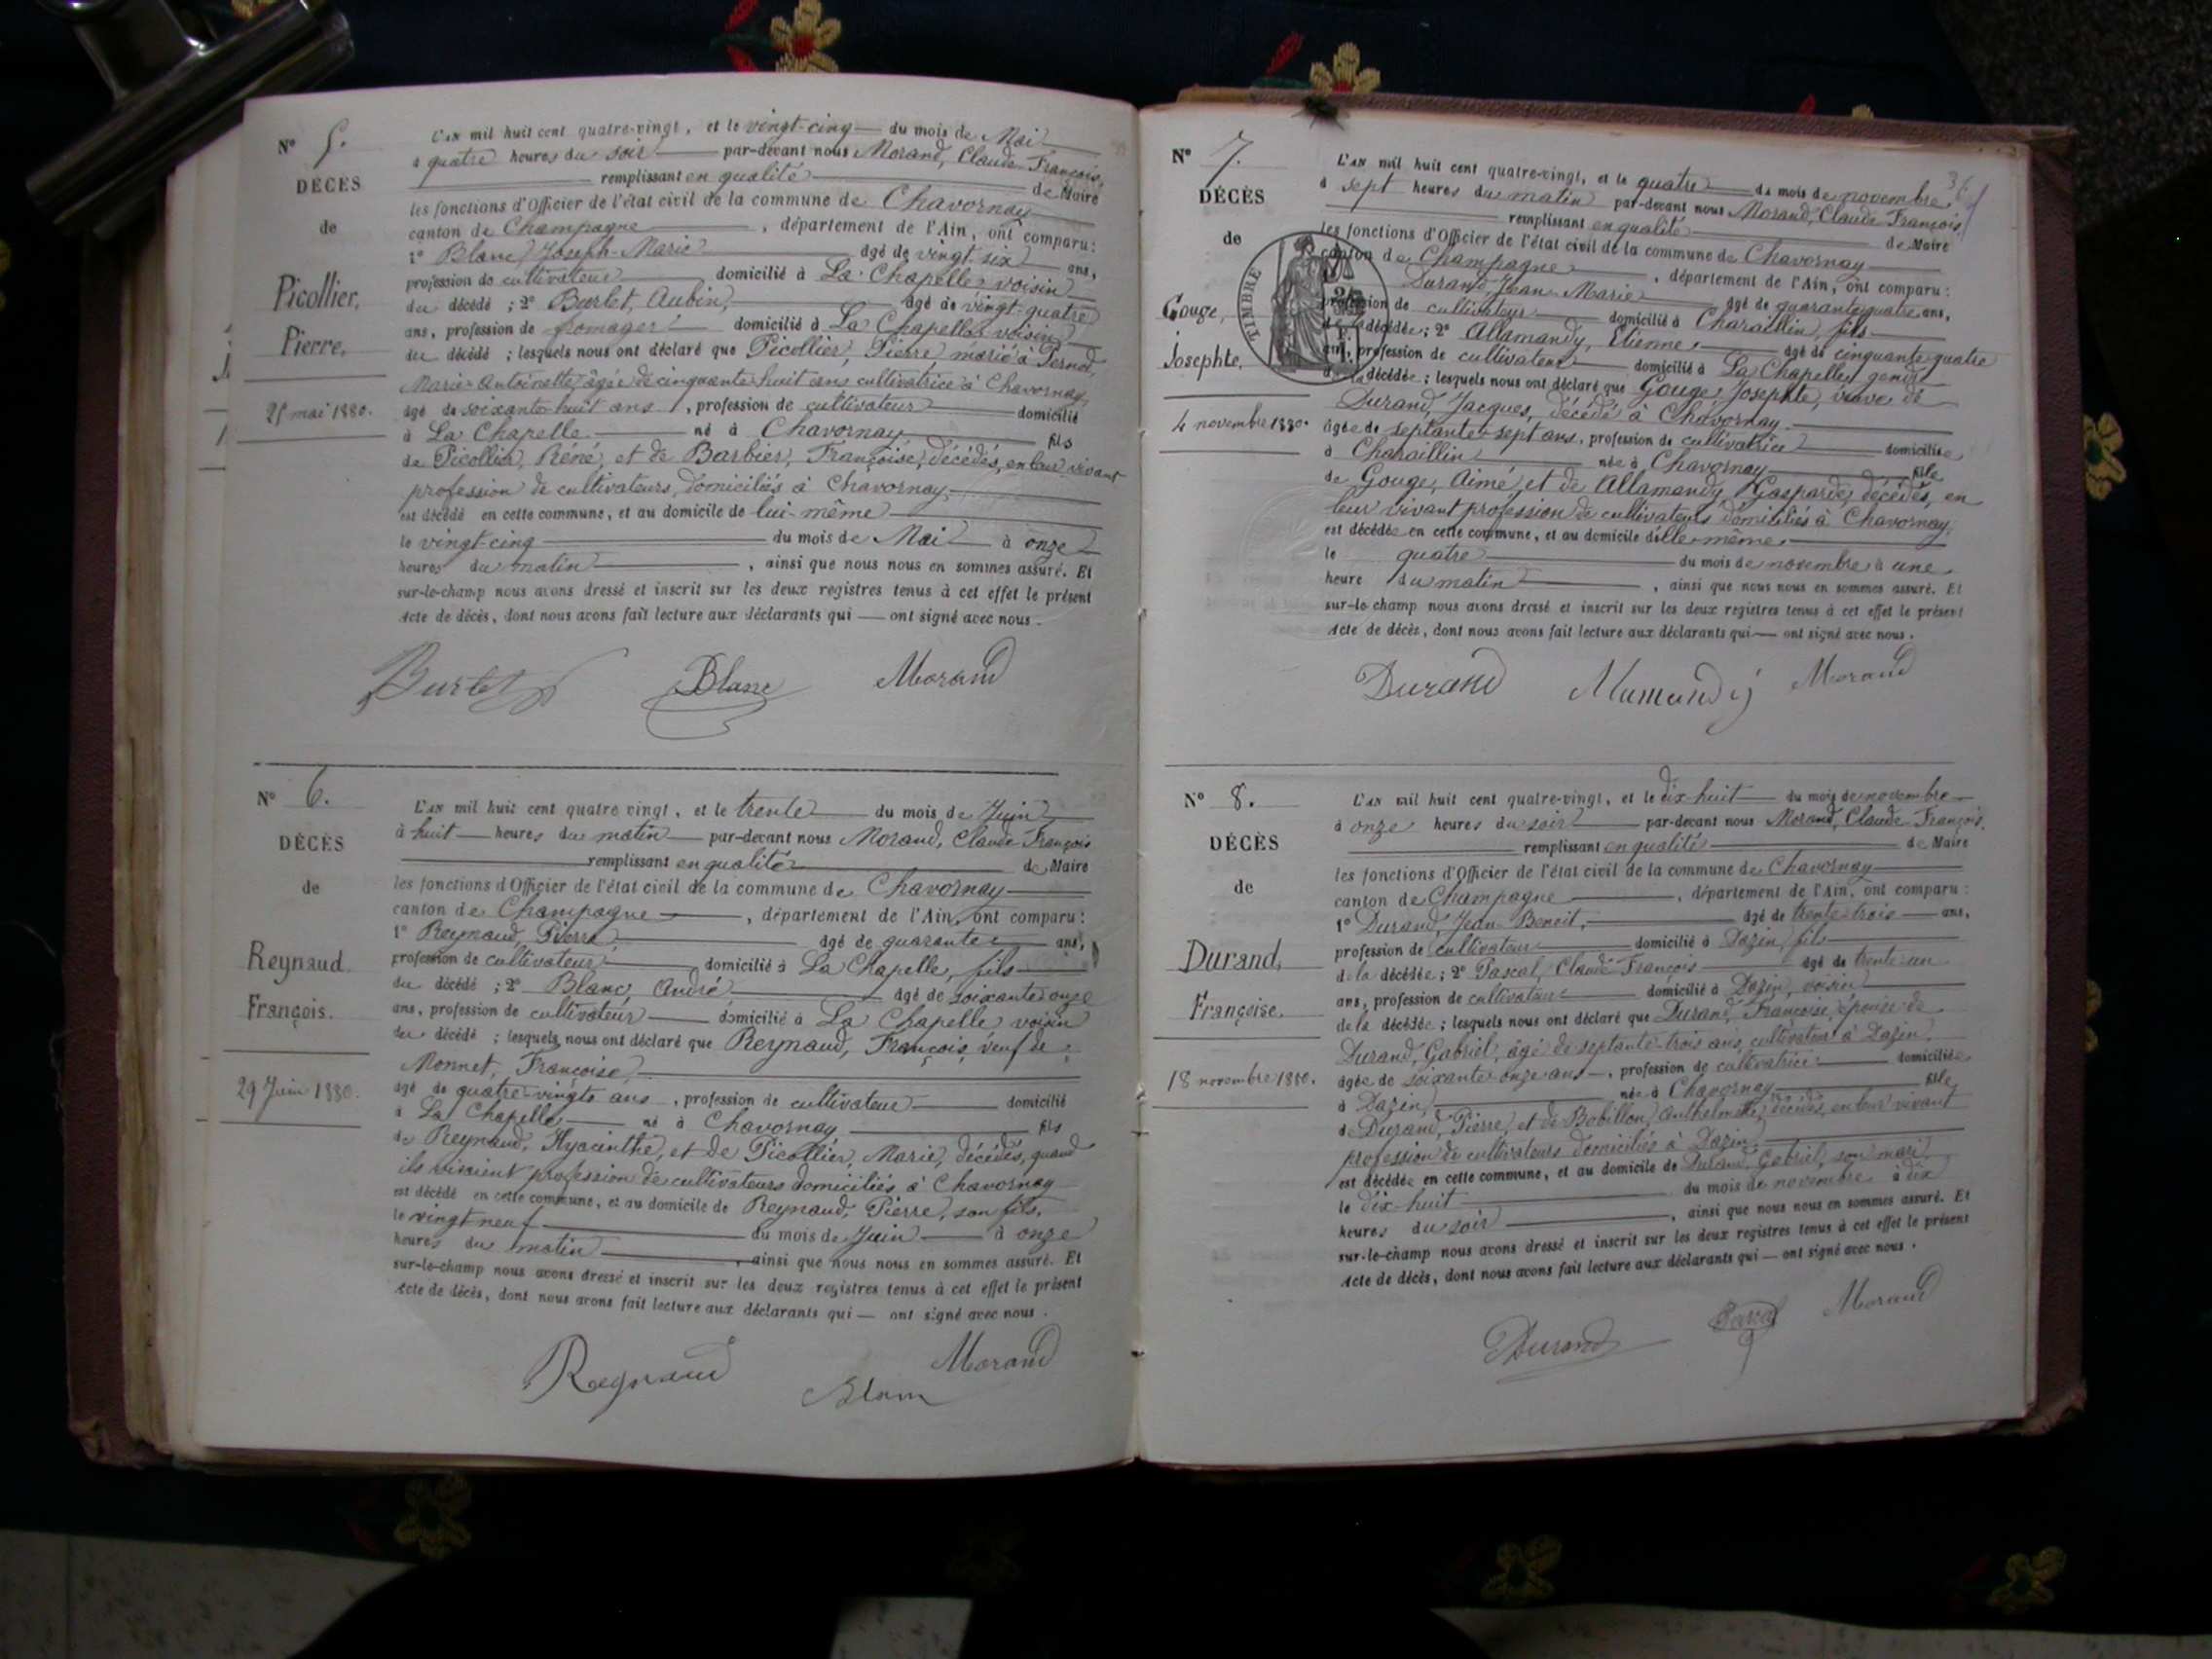 N° 5.
DÉCÈS
de
Picollier,
Pierre.
25 mai 1880.
L'AN mil huit cent quatre-vingt, et le vingt-cinq du mois de Mai
à quatre heures du soir par-devant nous Morand, Claude-François,
remplissant en qualité de Maire
les fonctions d'Officier de l'état civil de la commune de Chavornay
canton de Champagne, département de l'Ain, ont comparu:
1° Blanc, Joseph-Marie âgé de vingt-six ans,
profession de cultivateur domicilié à La Chapelle voisin
du décédé ; 2° Burlet, Aubin, âgé de vingt-quatre
ans, profession de fromager domicilié à La Chapelle voisin
du décédé ; lesquels nous ont déclaré que Picollier, Pierre marié à Pernod,
Marie-Antoinette, âgée de cinquante-huit ans cultivatrice à Chavornay,
âgé de soixante-huit ans, profession de cultivateur domicilié
à La Chapelle né à Chavornay fils
de Picollier, Réné, et de Barbier, Françoise, décédés, en leur vivant
profession de cultivateurs domiciliés à Chavornay,
est décédé en cette commune, et au domicile de lui-même
le vingt-cinq du mois de Mai à onze
heures du matin, ainsi que nous nous en sommes assuré. Et
sur-le-champ nous avons dressé et inscrit sur les deux registres tenus à cet effet le présent
Acte de décès, dont nous avons fait lecture aux déclarants qui — ont signé avec nous.
Burlet Blanc Morand
N° 6.
DÉCÈS
de
Reynaud.
François.
29 Juin 1880.
L'AN mil huit cent quatre vingt, et le trente du mois de Juin
à huit heures du matin par-devant nous Morand, Claude François
remplissant en qualité de Maire
les fonctions d'Officier de l'état civil de la commune de Chavornay
canton de Champagne, département de l'Ain, ont comparu:
1° Reynaud, Pierre âgé de quarante ans,
profession de cultivateur domicilié à La Chapelle, fils
du décédé ; 2° Blanc, André, âgé de soixante-onze
ans, profession de cultivateur domicilié à La Chapelle voisin
du décédé ; lesquels nous ont déclaré que Reynaud, François, veuf de
Monnet, Françoise,
âgé de quatre-vingts ans, profession de cultivateur domicilié
à La Chapelle né à Chavornay fils
de Reynaud, Hyacinthe, et de Picollier, Marie, décédés, quand
ils vivaient profession de cultivateurs domiciliés à Chavornay
est décédé en cette commune, et au domicile de Reynaud, Pierre, son fils,
le vingt neuf du mois de Juin à onze
heures du matin, ainsi que nous nous en sommes assuré. Et
sur-le-champ nous avons dressé et inscrit sur les deux registres tenus à cet effet le présent
Acte de décès, dont nous avons fait lecture aux déclarants qui — ont signé avec nous.
Reynaud Blanc Morand
N° 7.
DÉCÈS
de
Gouge,
Josephte.
4 novembre 1880.
TIMBRE
L'AN mil huit cent quatre-vingt, et le quatre du mois de novembre
à sept heures du matin par-devant nous Morand, Claude François,
remplissant en qualité de Maire
les fonctions d'Officier de l'état civil de la commune de Chavornay
canton de Champagne, département de l'Ain, ont comparu:
Durand, Jean-Marie âgé de quarante-quatre ans,
profession de cultivateur domicilié à Charaillin, fils
de la décédée ; 2° Allamandy, Etienne, âgé de cinquante-quatre
ans, profession de cultivateur domicilié à La Chapelle, gendre
de la décédée ; lesquels nous ont déclaré que Gouge, Josephte, veuve de
Durand, Jacques, décédé à Chavornay.
âgée de septante-sept ans, profession de cultivatrice domiciliée
à Charaillin née à Chavornay fille
de Gouge, Aimé, et de Allamandy, Gasparde, décédés, en
leur vivant profession de cultivateurs domiciliés à Chavornay,
est décédée en cette commune, et au domicile d'elle-même,
le quatre du mois de novembre à une
heure du matin, ainsi que nous nous en sommes assuré. Et
sur-le-champ nous avons dressé et inscrit sur les deux registres tenus à cet effet le présent
Acte de décès, dont nous avons fait lecture aux déclarants qui — ont signé avec nous.
Durand Allamandy Morand
N° 8.
DÉCÈS
de
Durand,
Françoise.
18 novembre 1880.
L'AN mil huit cent quatre-vingt, et le dix-huit du mois de novembre
à onze heures du soir par-devant nous Morand, Claude François,
remplissant en qualité de Maire
les fonctions d'Officier de l'état civil de la commune de Chavornay
canton de Champagne, département de l'Ain, ont comparu:
1° Durand, Jean-Benoit, âgé de trente-trois ans,
profession de cultivateur domicilié à Dazin, fils
de la décédée ; 2° Pascal, Claude François âgé de trente-un
ans, profession de cultivateur domicilié à Dazin, voisin
de la décédée ; lesquels nous ont déclaré que Durand, Françoise, épouse de
Durand, Gabriel, âgé de septante-trois ans, cultivateur à Dazin,
âgée de soixante-onze ans, profession de cultivatrice domiciliée
à Dazin, née à Chavornay fille
de Durand, Pierre, et de Bobillon, Anthelmette, décédés, en leur vivant
profession de cultivateurs domiciliés à Dazin,
est décédée en cette commune, et au domicile de Durand, Gabriel, son mari,
le dix-huit du mois de novembre à dix
heures du soir, ainsi que nous nous en sommes assuré. Et
sur-le-champ nous avons dressé et inscrit sur les deux registres tenus à cet effet le présent
Acte de décès, dont nous avons fait lecture aux déclarants qui — ont signé avec nous.
Durand Pascal Morand